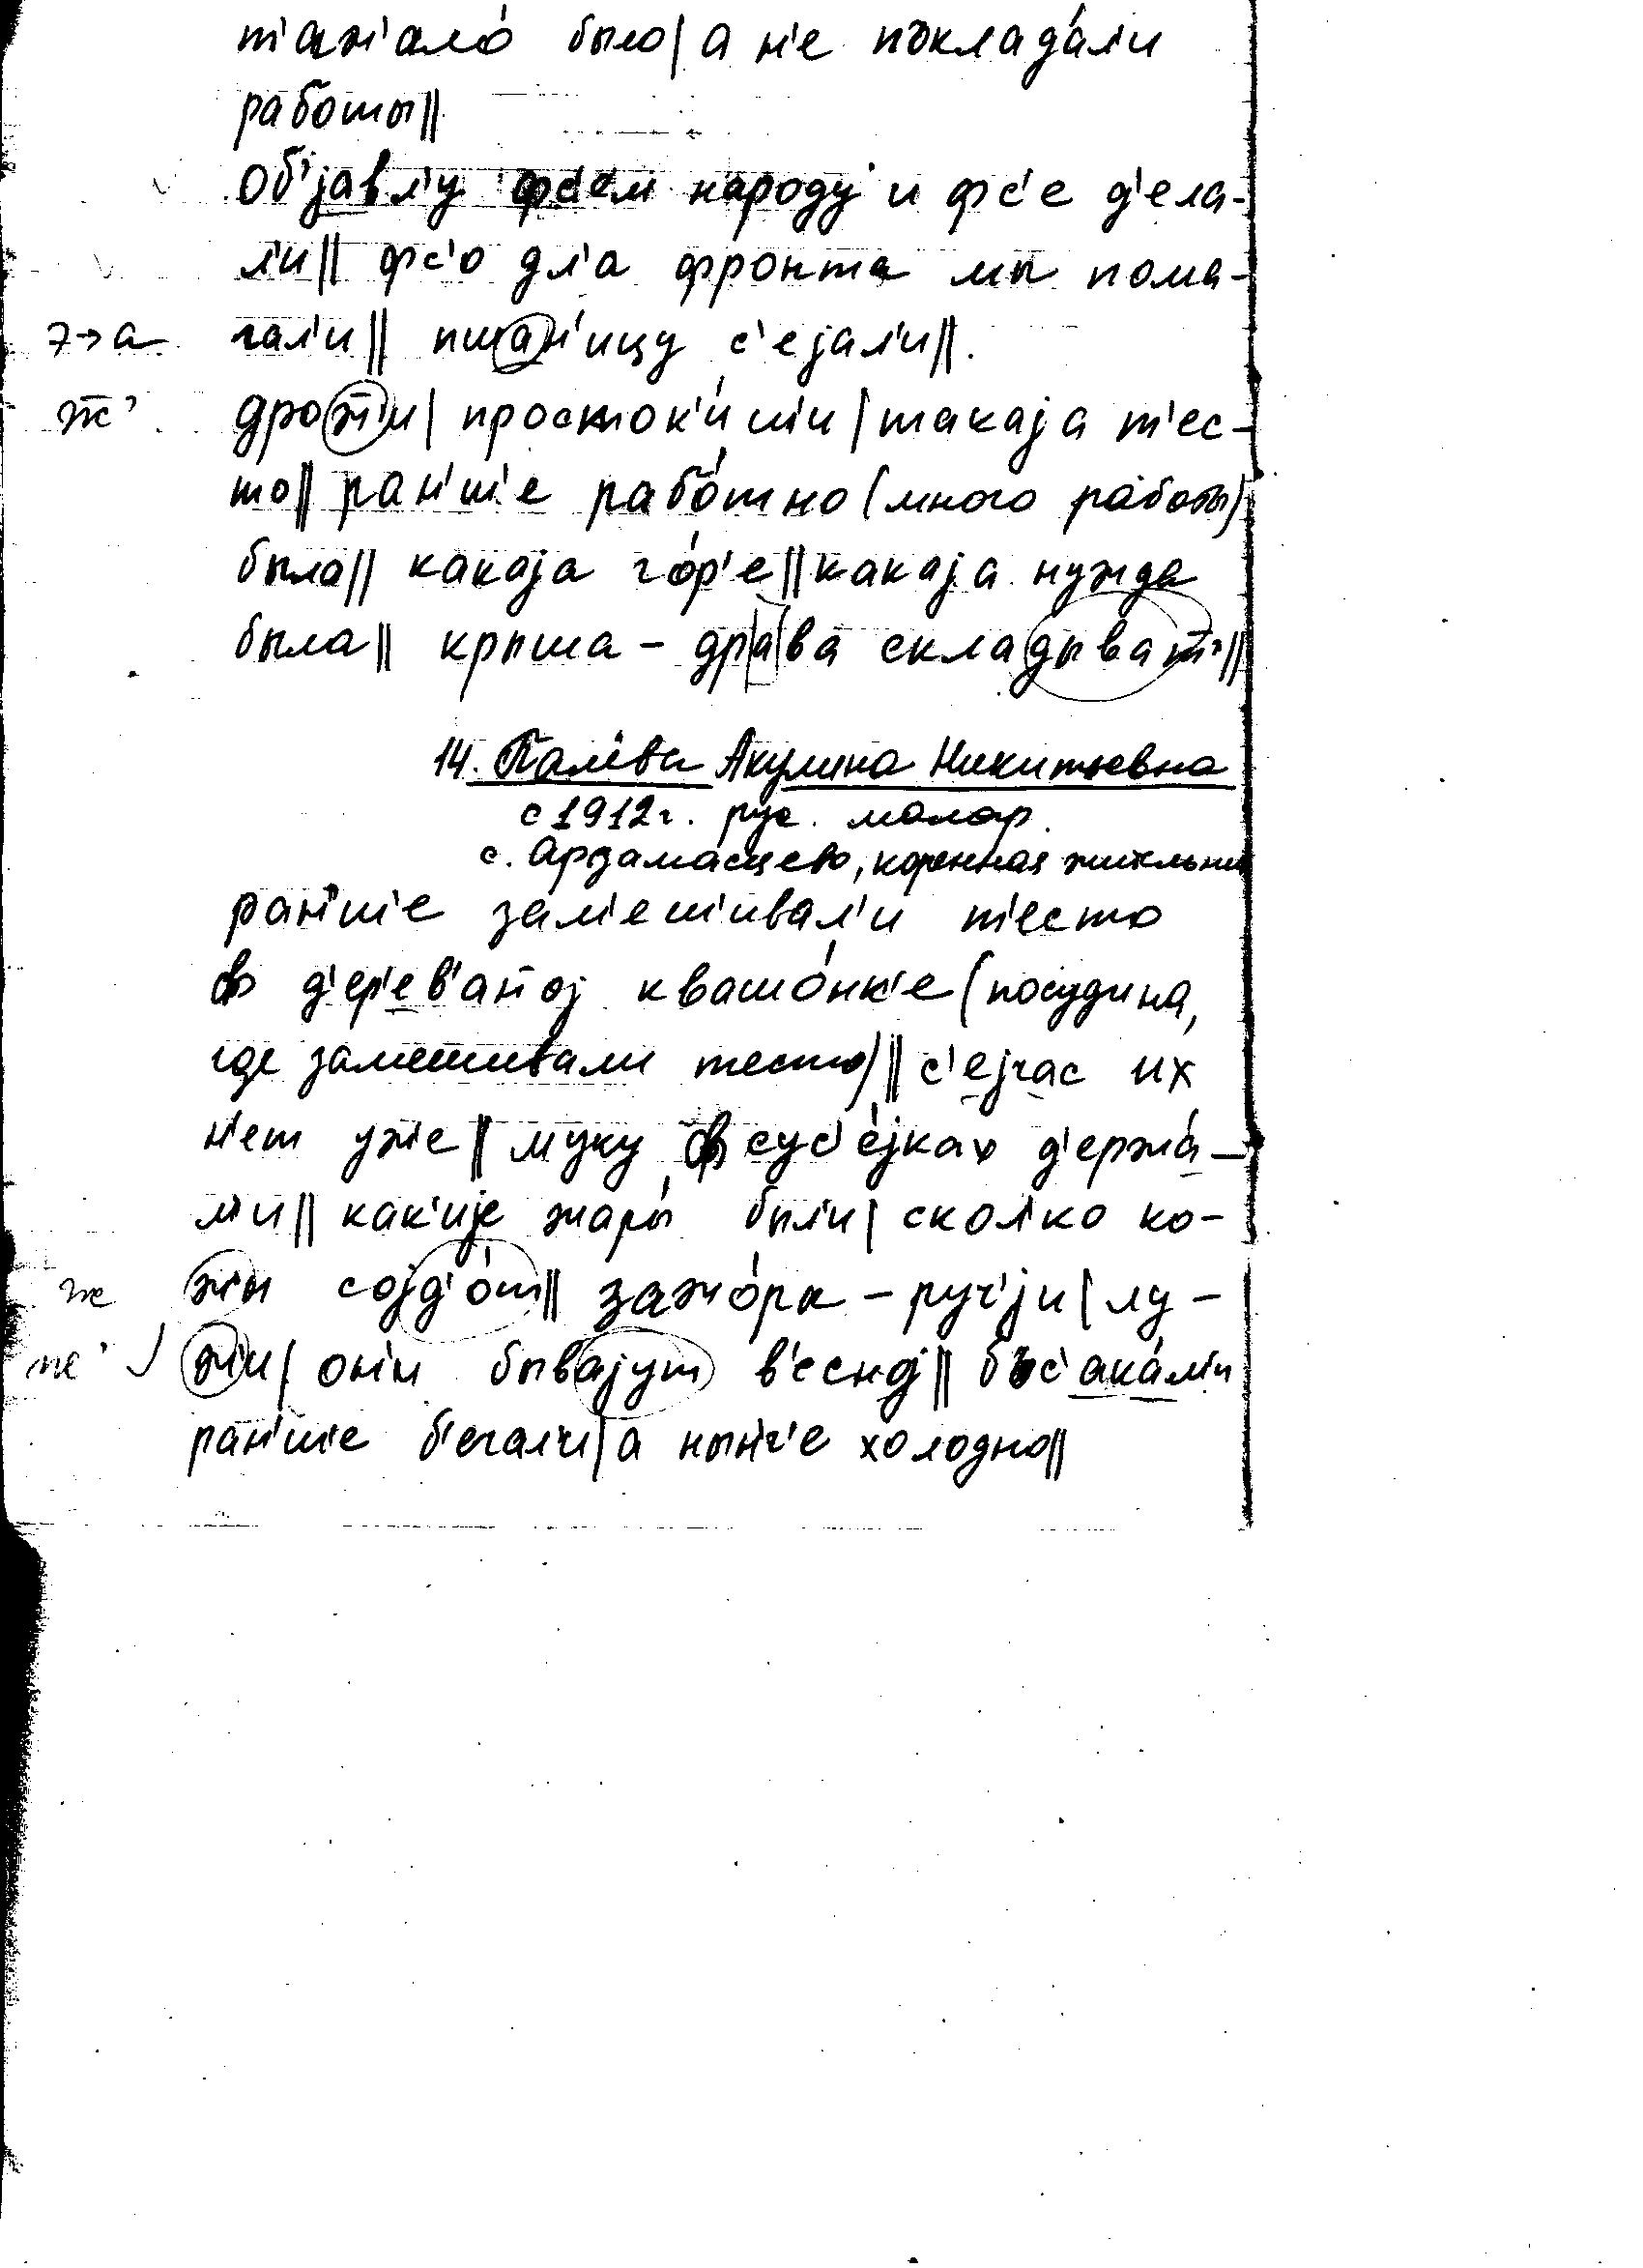 т'аж'ало́ было| а н'е пъклада́л'и
работы||
об'јавл'у фс'ем народу и фс'е д'ела-
л'и|| фс'о дл'а фронта мы пома-
э→а гал'и|| пшан'ицу с'ејал'и||.
ж' дрож'и| просток'и́ш'и| такаја т'ес-
то|| ран'ш'е рабо́тно (много работы)
была|| какаја го́р'е|| какаја нужда
была|| крыша - драва складыват'||
14. Акулина Никитьевна
с 1912 г. рус. малогр.
с. Арзамасцево, коренная жительниц
ран'ш'е зам'еш'ивал'и т'есто
в д'ер'ев'аной квашо́нк'е (посудина,
где замешивали тесто)|| с'ејчас их
н'ет уж'е|| муку в сус'е́јках д'ержа́-
л'и|| как'ије жары́ был'и| скол'ко ко-
ж жы сојд'о́т|| зажо́ра - руч'ји| лу-
ж' ж'и| он'и бывајут в'есној|| бъс'ака́м'и
ран'ш'е б'егал'и| а нын'ч'е холодно||